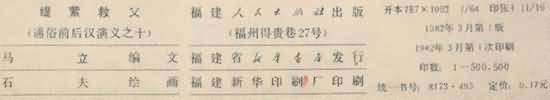 缇萦救父
(通俗前后汉演义之十)
马立编文
石夫绘画
福建人民出版社出版
(福州得贵巷27号)
福建省新华书店发行
福建新华印刷厂印刷
开本787×1092 1/64 印张1 11/16
1982年3月第1版
1982年3月第1次印刷
印数:1—500,500
统一书号:8173·495 定价:0.17元